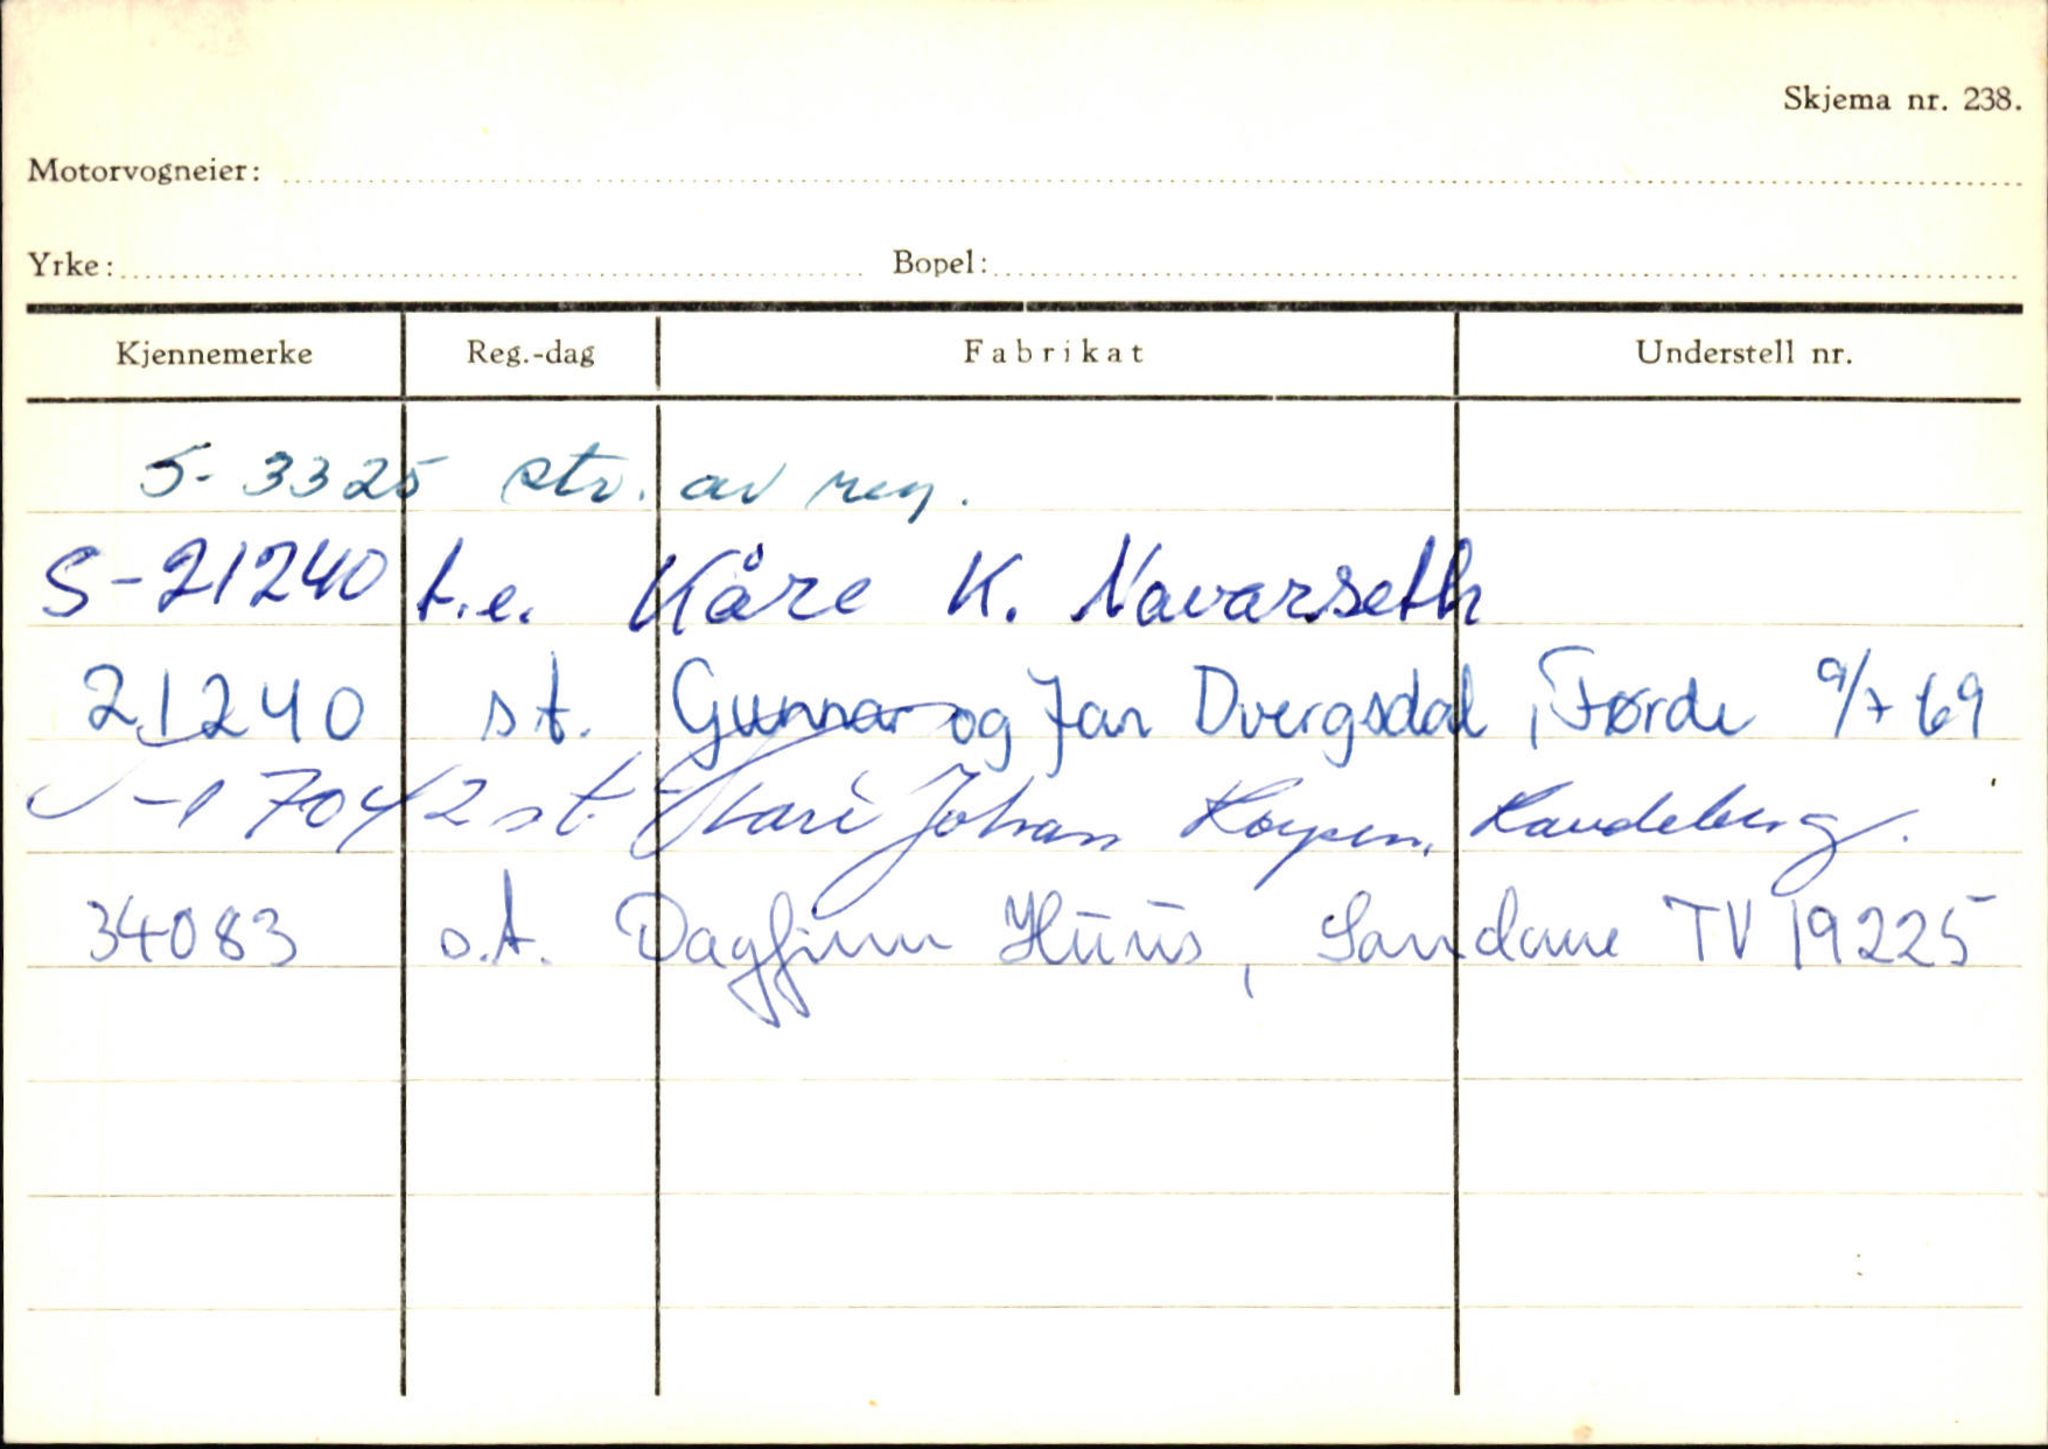 Skjema nr. 238.
Motorvogneier:
Yrke: Bopel:
Kjennemerke Reg.-dag Fabrikat Understell nr.
S-3325 str. av reg.
S-21240 t.e. Kåre K. Navarseth
21240 st. Gunnar og Jan Dvergsdal, Førde 9/7 69
S-17042 st. Johan
34083 s.t. Dagfinn Huus, Sandane TV 19225